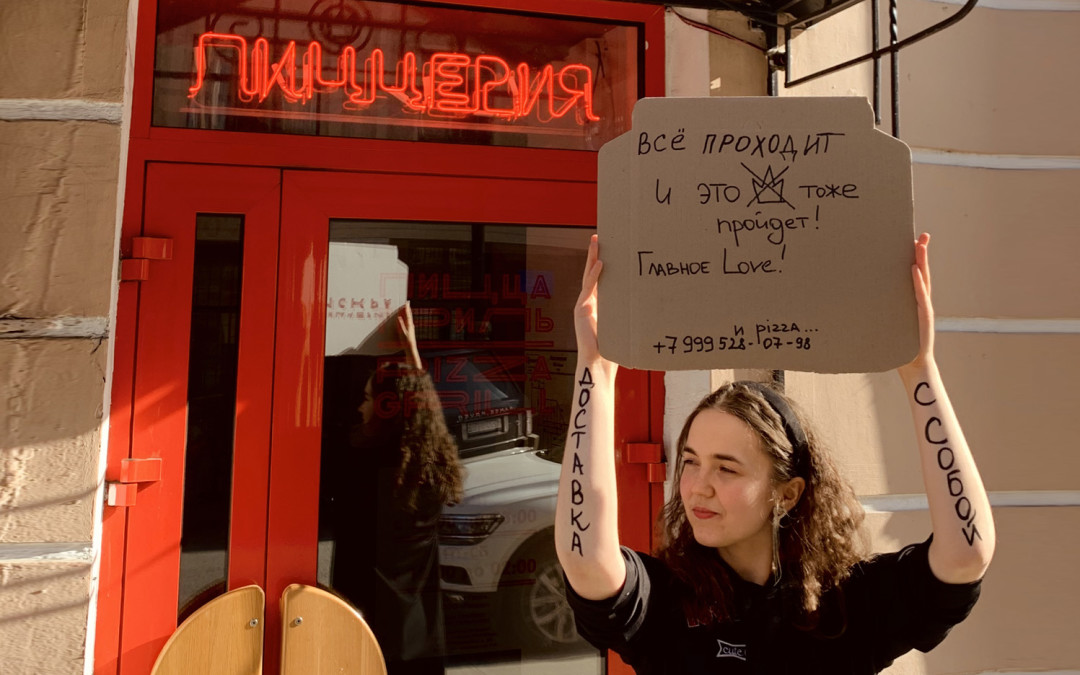 ПИЦЦЕРИЯ
ВСЁ ПРОХОДИТ
И ЭТО тоже
пройдет!
Главное Love!
и pizza...
+7 999 528-07-98
ДОСТАВКА
С СОБОЙ
ПИЦЦА
ГРИЛЬ
PIZZA
GRILL
cute